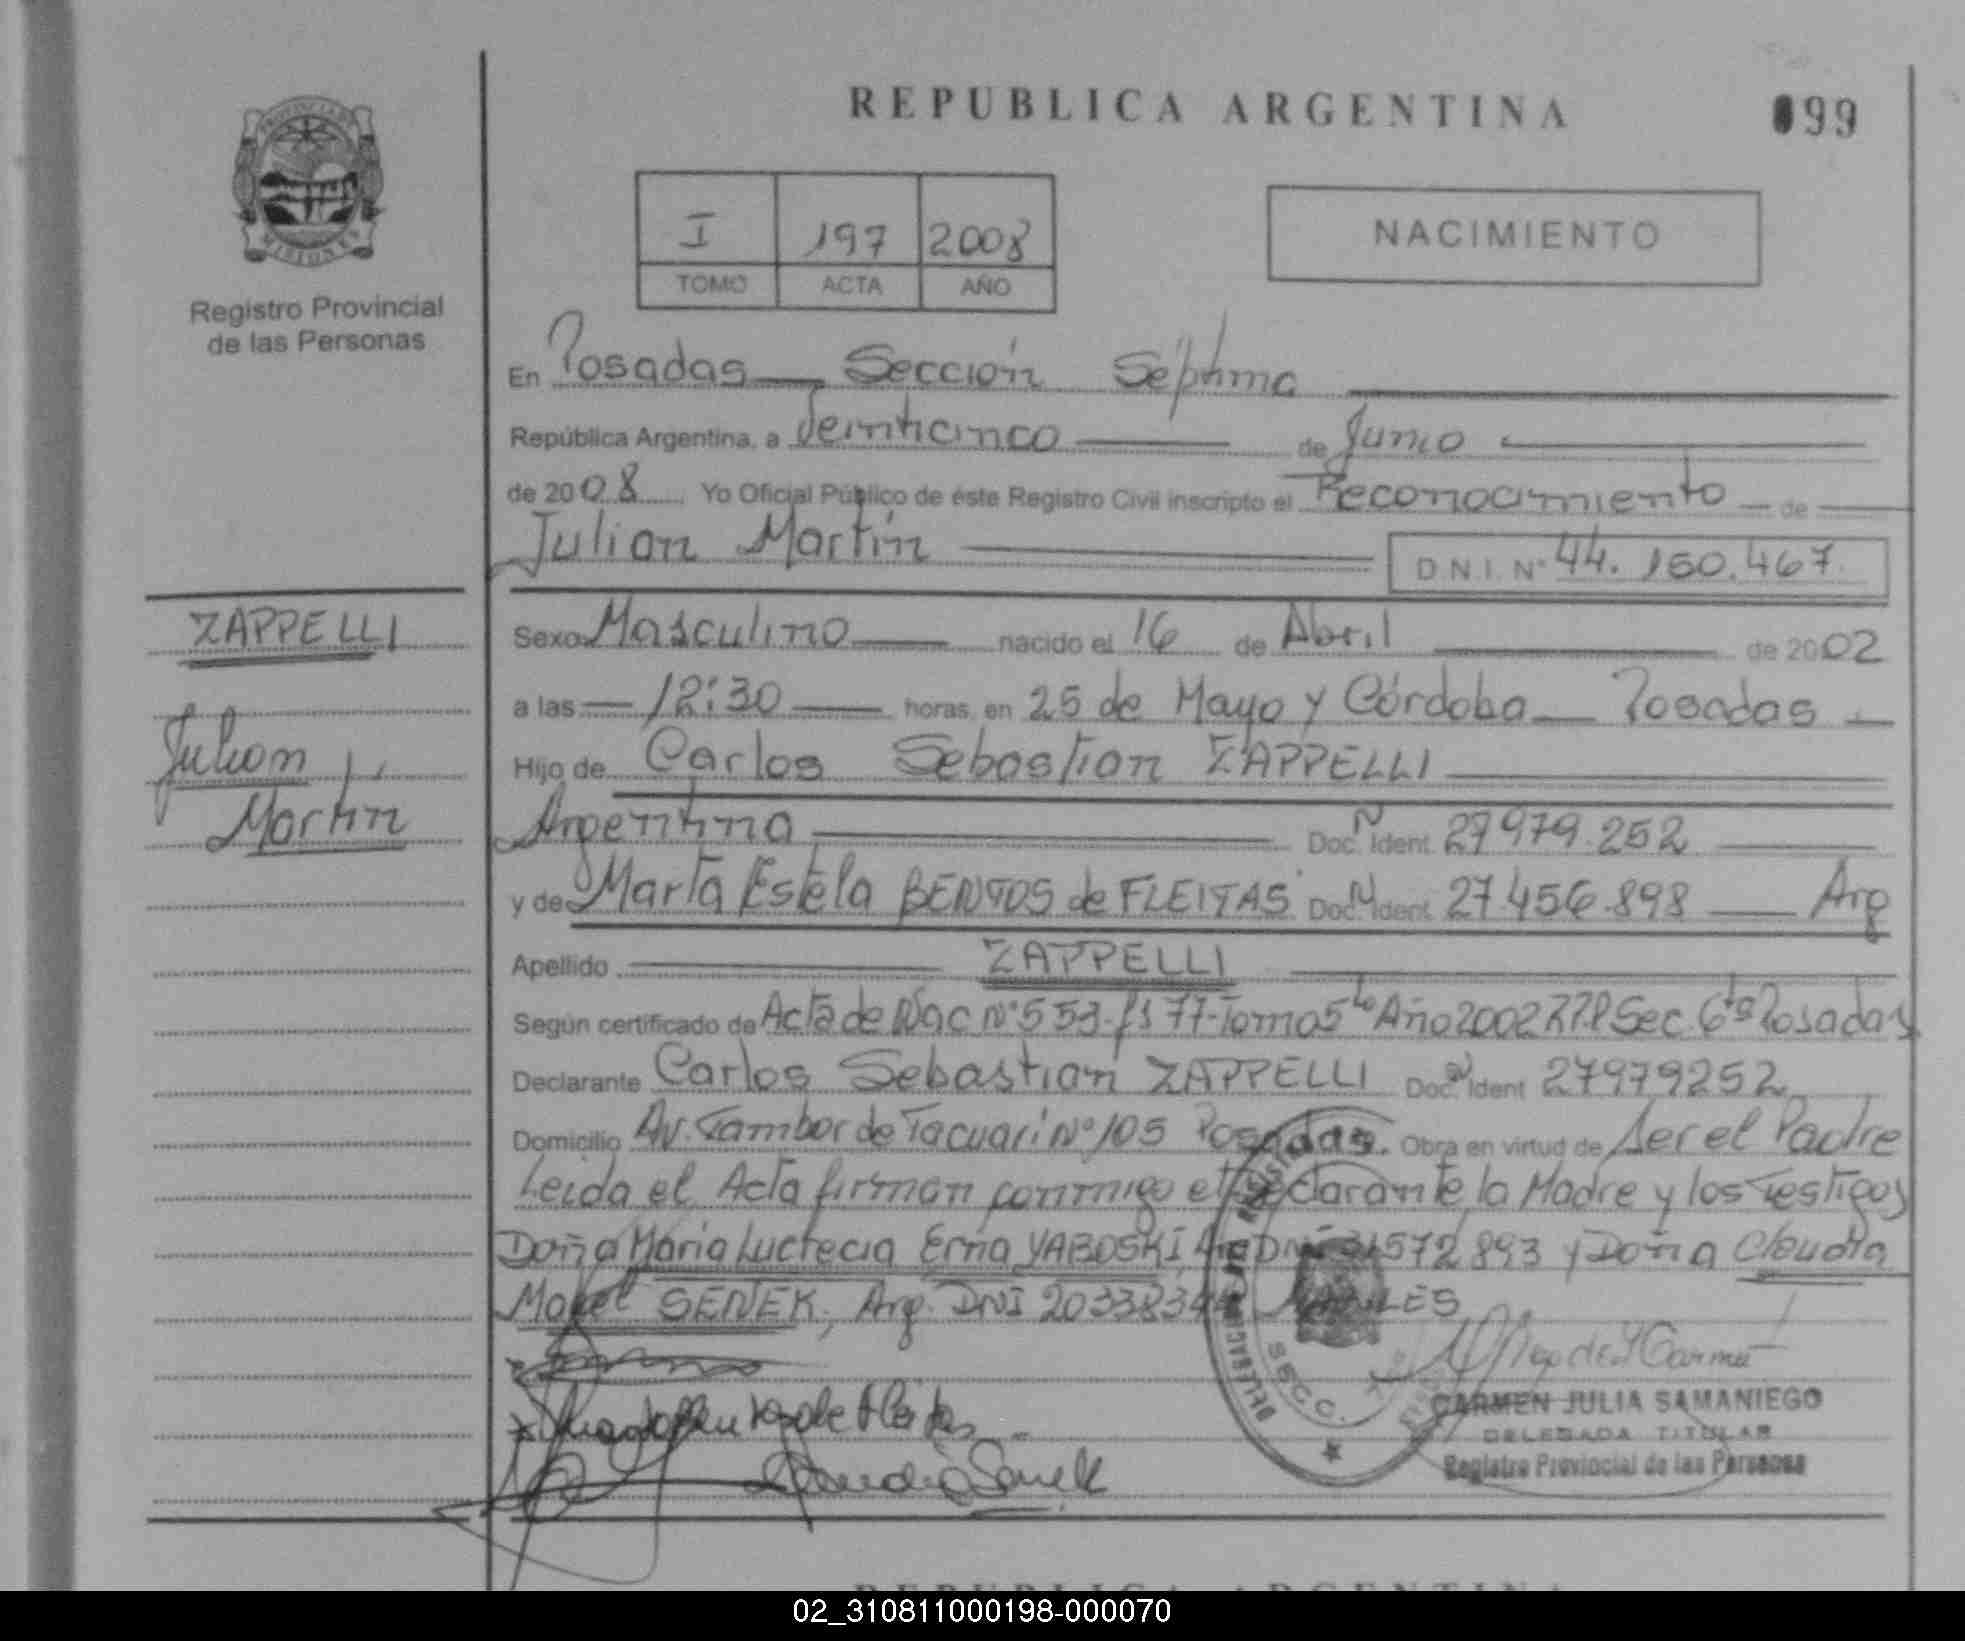 REPUBLICA ARGENTINA
099
PROVINCIA DE MISIONES
Registro Provincial
de las Personas
I 197 2008
TOMO ACTA AÑO
NACIMIENTO
En Posadas Sección Séptima
República Argentina, a Veinticinco de Junio
de 2008 Yo Oficial Público de éste Registro Civil inscripto el Reconocimiento de
Julian Martín D.N.I. N° 44.150.467
ZAPPELLI
Julian
Martin
Sexo Masculino nacido el 16 de Abril de 2002
a las 12:30 horas, en 25 de Mayo y Córdoba Posadas
Hijo de Carlos Sebastian ZAPPELLI
Argentina Doc. N Ident. 27979.252
y de Marta Estela BENTOS de FLEITAS Doc. N Ident. 27.456.898 Arg
Apellido ZAPPELLI
Según certificado de Acta de Nac N° 553-fs 77-Tomo 5to Año 2002 Sec. 6ta Posadas
Declarante Carlos Sebastian ZAPPELLI Doc. N Ident 27979252
Domicilio Av. Tambor de Tacuari N° 105 Posadas. Obra en virtud de Ser el Padre
Leida el Acta firman conmigo el Declarante la Madre y los Testigos
Doña Maria Luctecia Erna YABOSKI, Arg DNI 31572893 y Doña Claudia
Mabel SENEK, Arg. DNI 2033834
CARMEN JULIA SAMANIEGO
DELEGADA TITULAR
Registro Provincial de las Personas
02_310811000198-000070